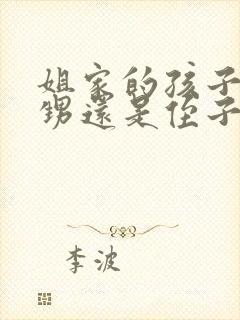 姐家的孩子
甥還是侄子
李波